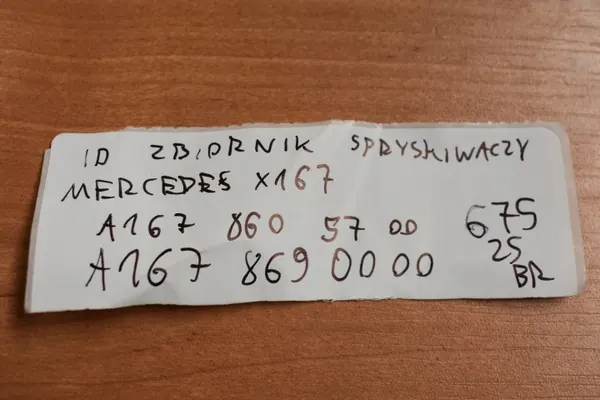 ID ZBIORNIK SPRYSKIWACZY
MERCEDES X167
A167 860 57 00
A167 869 00 00
675
25
BR